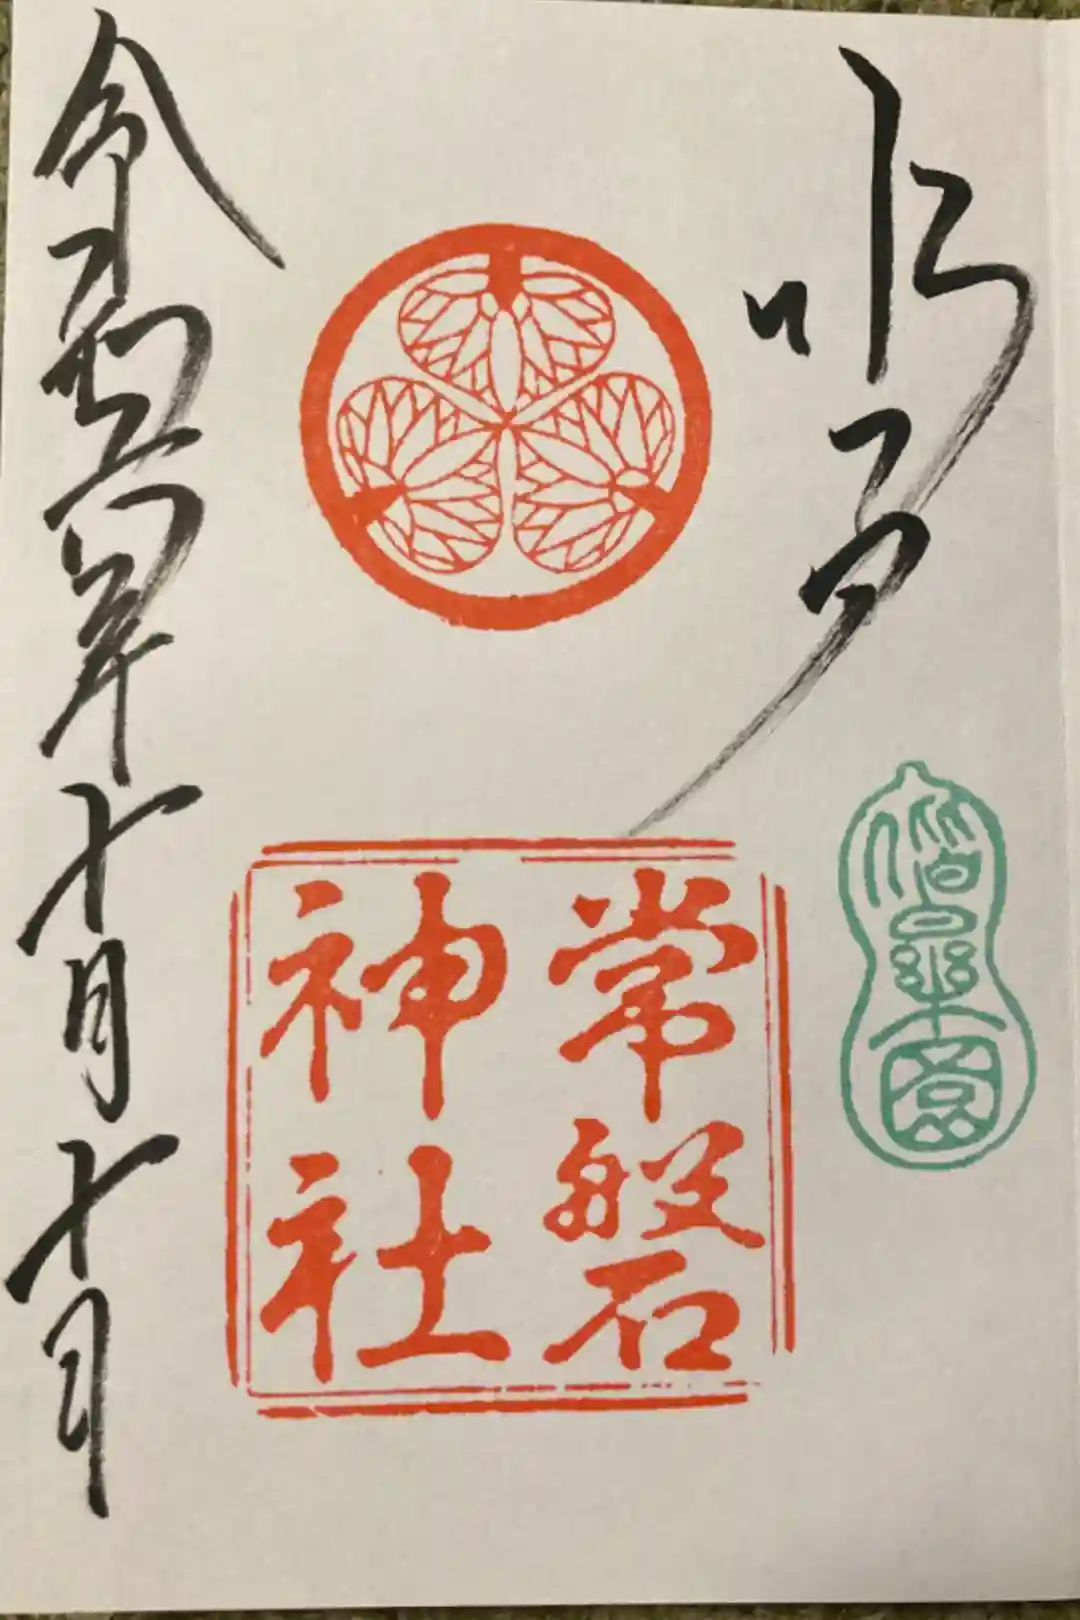 水戸
偕楽園
常磐
神社
令和六年十月十日